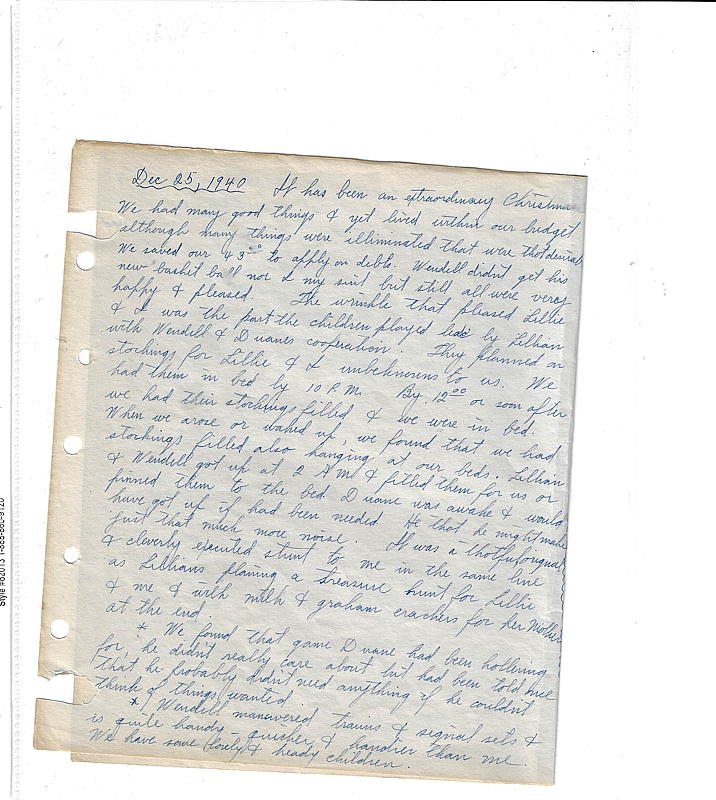 Dec 25, 1940 It has been an extraordinary Christmas
We had many good things & yet lived within our budget
although many things were illiminated that were thot denial
We saved our 43⁰⁰ to apply on debts. Wendell didn't get his
new basket ball nor I my suit but still all were very
happy & pleased. The wrinkle that pleased Lillie
& I was the part the children played led by Lillian
with Wendell & Duanes cooperation. They planned on
stockings for Lillie & I unbeknowns to us. We
had them in bed by 10 P.M. By 12⁰⁰ or soon after
we had their stockings filled & we were in bed.
When we arose or waked up, we found that we had
stockings filled also hanging at our beds. Lillian
& Wendell got up at 2 A M & filled them for us or
pinned them to the bed. Duane was awake & would
have got up if had been needed. He thot he might make
just that much more noise. It was a thotful
& cleverly executed stunt to me in the same line
as Lillians planing a treasure hunt for Lillie
& me & with milk & graham crackers for her Mother
at the end.
* We found that game Duane had been hollering
for, he didn't really care about but had been told me
that he probably didn't need anything if he couldn't
think of things wanted.
* Wendell maneuvered trains & signal sets &
is quite handy – quicker & handier than me.
We have some lovely & heady children.
Style #62013 1-888-880-9120